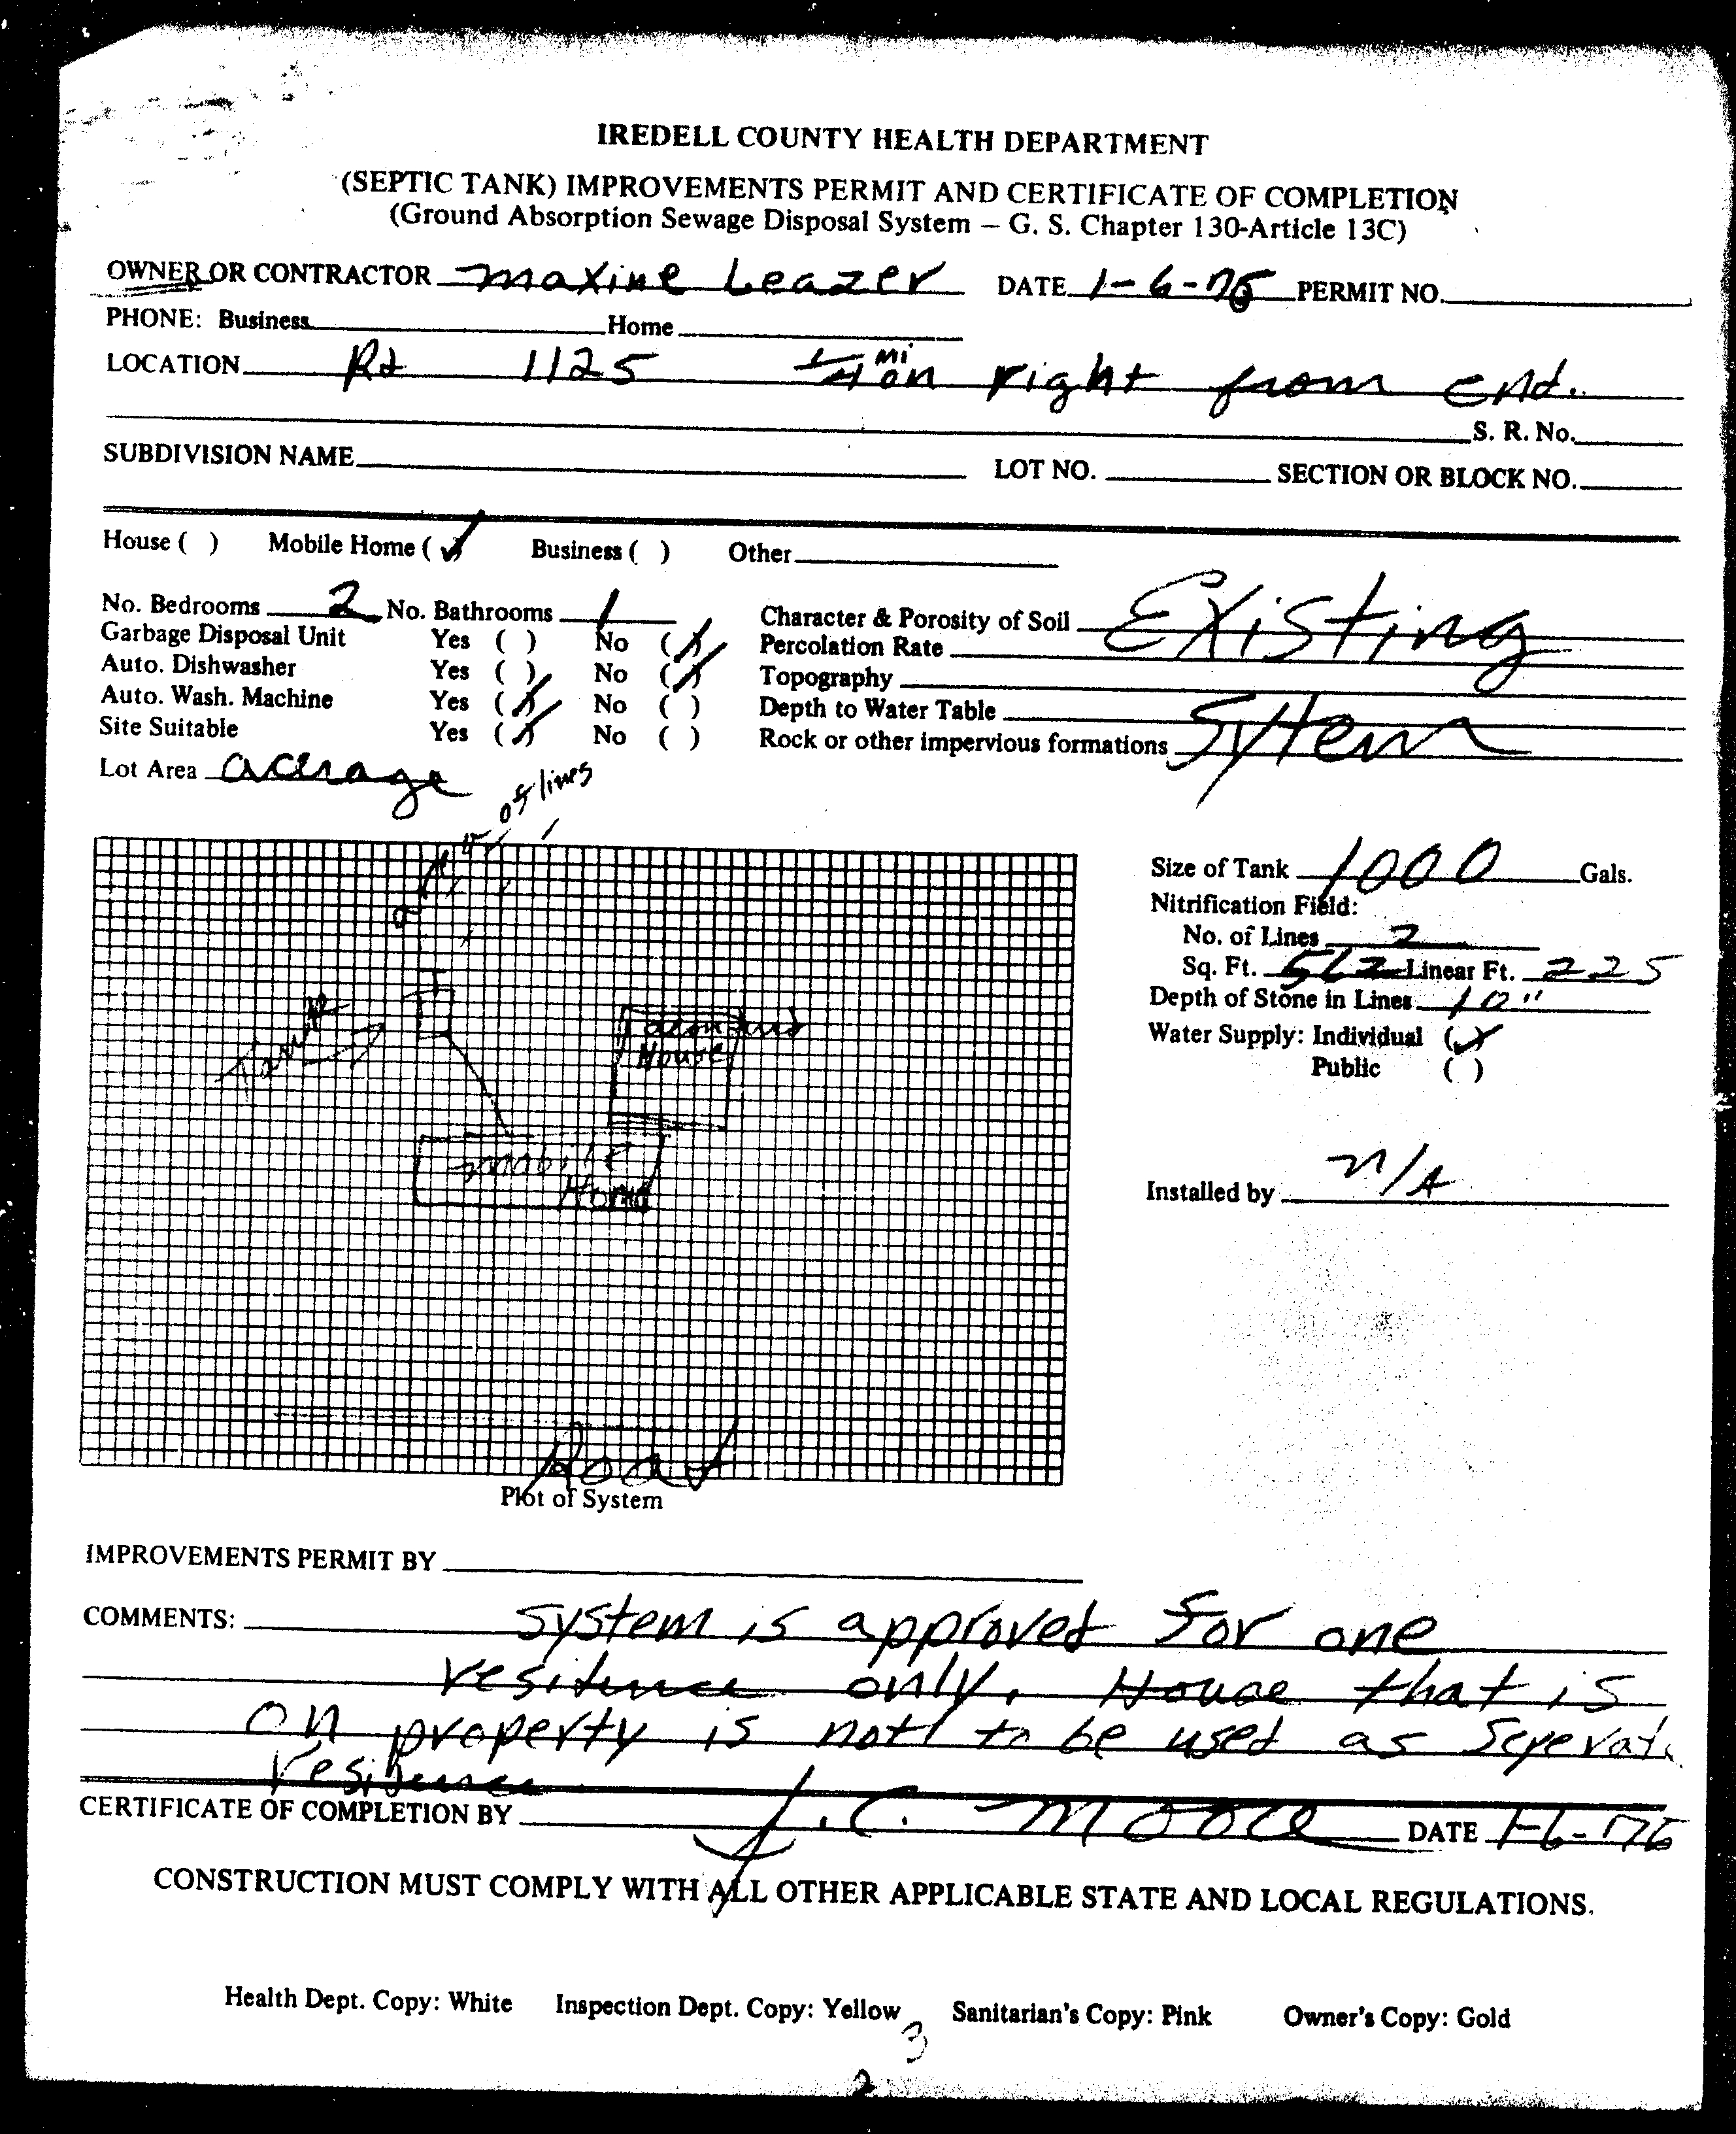 IREDELL COUNTY HEALTH DEPARTMENT
(SEPTIC TANK) IMPROVEMENTS PERMIT AND CERTIFICATE OF COMPLETION
(Ground Absorption Sewage Disposal System – G. S. Chapter 130-Article 13C)
OWNER OR CONTRACTOR maxine Leazer DATE 1-6-76 PERMIT NO.
PHONE: Business Home
LOCATION Rd 1125 1/4 mi on right from end.
S. R. No.
SUBDIVISION NAME LOT NO. SECTION OR BLOCK NO.
House ( ) Mobile Home (✓) Business ( ) Other
No. Bedrooms 2 No. Bathrooms 1 Character & Porosity of Soil Existing
Garbage Disposal Unit Yes ( ) No (✓) Percolation Rate
Auto. Dishwasher Yes ( ) No (✓) Topography
Auto. Wash. Machine Yes (✓) No ( ) Depth to Water Table
Site Suitable Yes (✓) No ( ) Rock or other impervious formations Sytem
Lot Area acerage
of lines
Size of Tank 1000 Gals.
Nitrification Field:
No. of Lines 2
Sq. Ft. 562 Linear Ft. 225
Depth of Stone in Lines 10"
Tank
House
Water Supply: Individual (✓)
Public ( )
mobile
Home
Installed by n/A
Road
Plot of System
IMPROVEMENTS PERMIT BY
COMMENTS: System is approved for one
residence only. House that is
on property is not to be used as Seperate
residence
CERTIFICATE OF COMPLETION BY J. C. Moore DATE 1-6-76
CONSTRUCTION MUST COMPLY WITH ALL OTHER APPLICABLE STATE AND LOCAL REGULATIONS.
Health Dept. Copy: White Inspection Dept. Copy: Yellow Sanitarian's Copy: Pink Owner's Copy: Gold
3
2